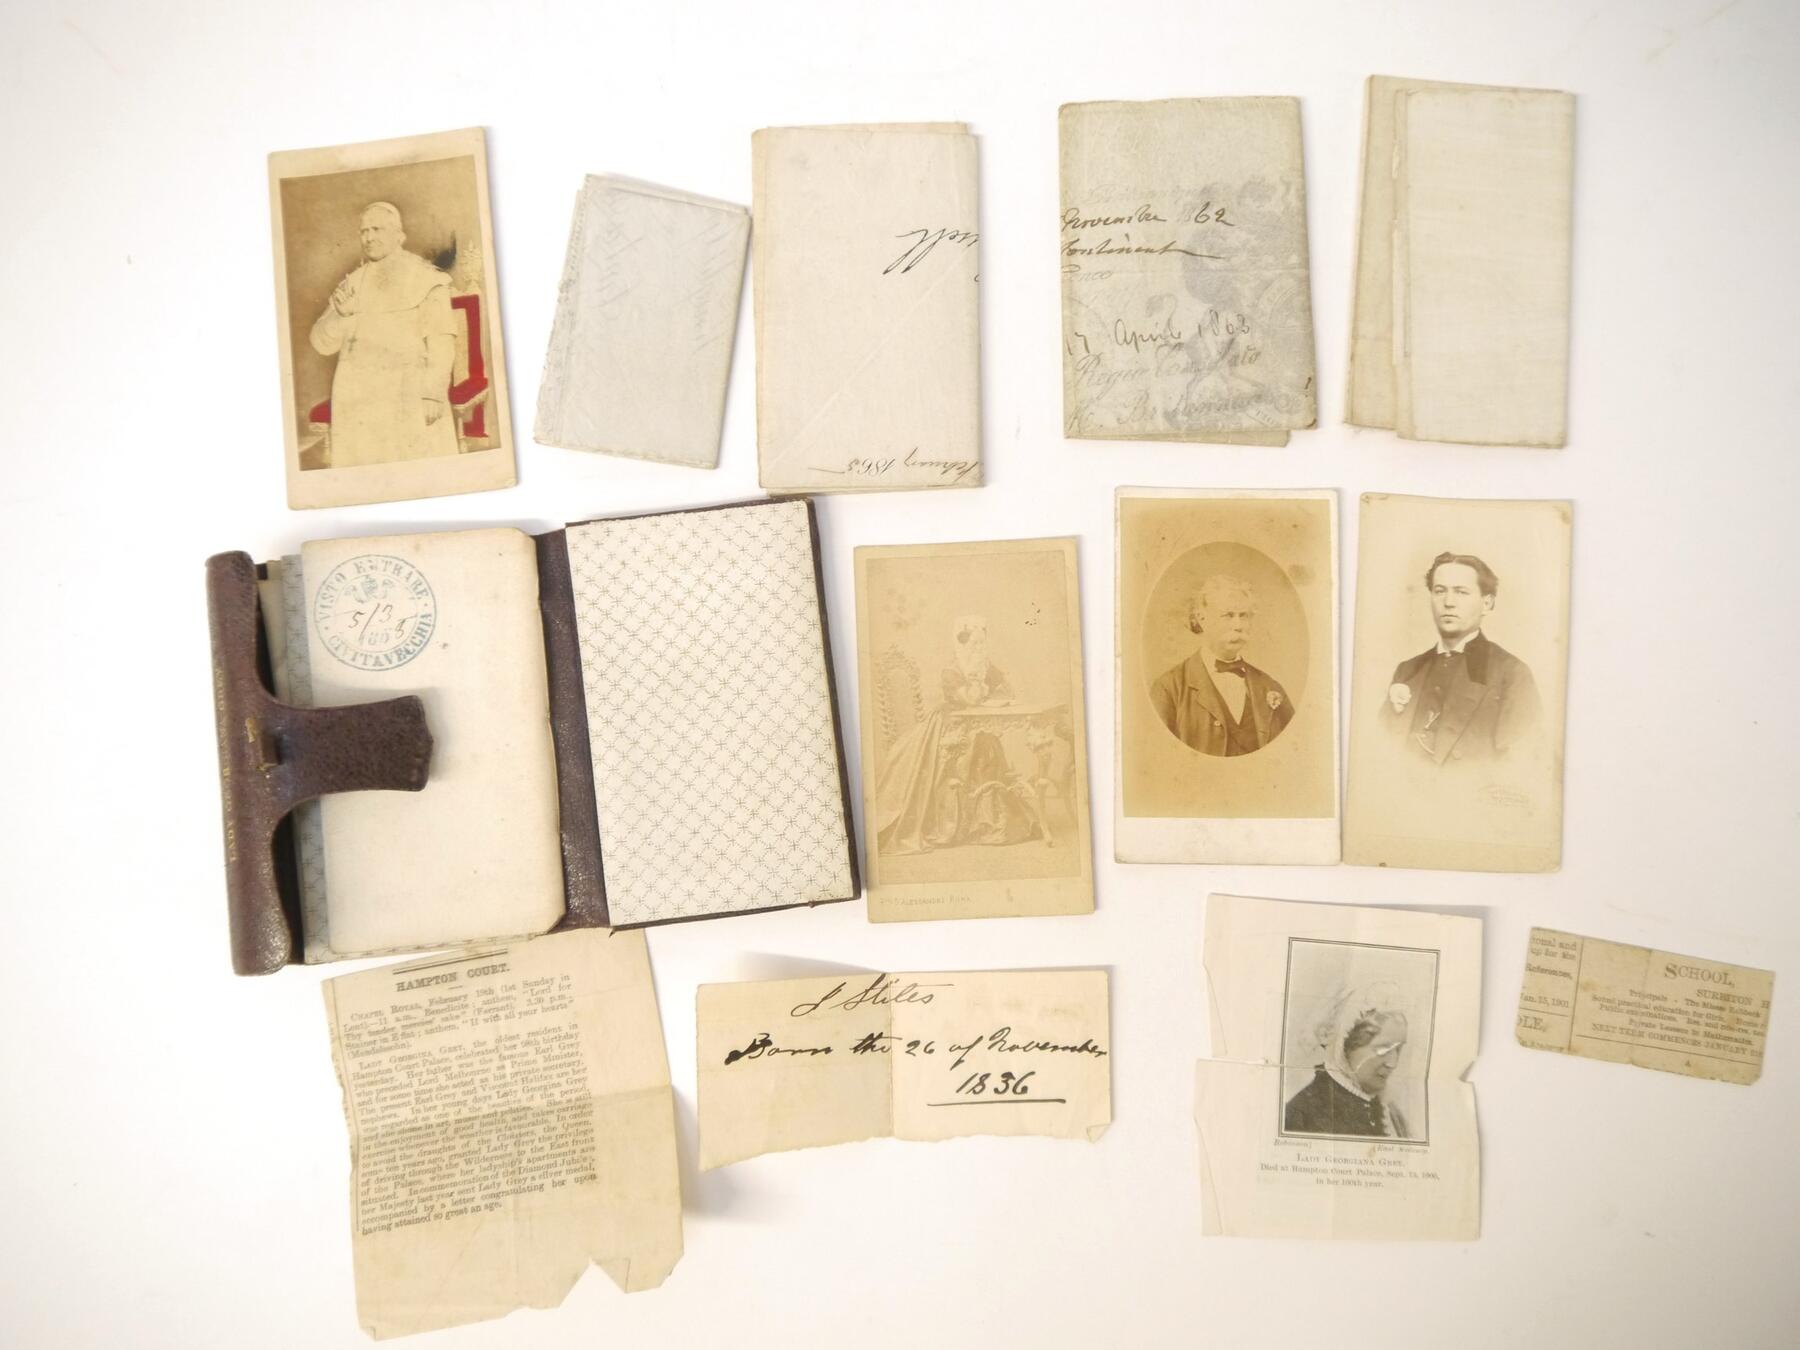 February 1863
Novembre 1862
Continent
17 April 1863
Regio Consolato
VISTO ENTRARE
5/3
1863
CIVITAVECCHIA
D'ALESSANDRI ROMA
HAMPTON COURT.
CHAPEL ROYAL, February 19th (1st Sunday in
Lent)—11 a.m., Benedicite; anthem, "Lord for
Thy tender mercies' sake" (Farrant). 3.30 p.m.,
Stainer in E flat; anthem, "If with all your hearts"
(Mendelssohn).
LADY GEORGINA GREY, the oldest resident in
Hampton Court Palace, celebrated her 98th birthday
yesterday. Her father was the famous Earl Grey
who preceded Lord Melbourne as Prime Minister,
and for some time she acted as his private secretary.
The present Earl Grey and Viscount Halifax are her
nephews. In her young days Lady Georgina Grey
was regarded as one of the beauties of the period,
and she shone in art, music and politics. She is still
in the enjoyment of good health, and takes carriage
exercise whenever the weather is favourable. In order
to avoid the draughts of the Cloisters, the Queen,
some ten years ago, granted Lady Grey the privilege
of driving through the Wilderness to the East front
of the Palace, where her ladyship's apartments are
situated. In commemoration of the Diamond Jubilee,
her Majesty last year sent Lady Grey a silver medal,
accompanied by a letter congratulating her upon
having attained so great an age.
J Stiles
Born the 26 of November
1836
Robinson] [East Molesey.
LADY GEORGIANA GREY.
Died at Hampton Court Palace, Sept. 13, 1900,
in her 100th year.
ional and
up for the
References,
Jan. 15, 1901
OLE,
SCHOOL,
SURBITON H
Principals - The Misses Rabbeth
Sound practical education for Girls.
Public examinations.
Private Lessons in Mathematics.
NEXT TERM COMMENCES JANUARY